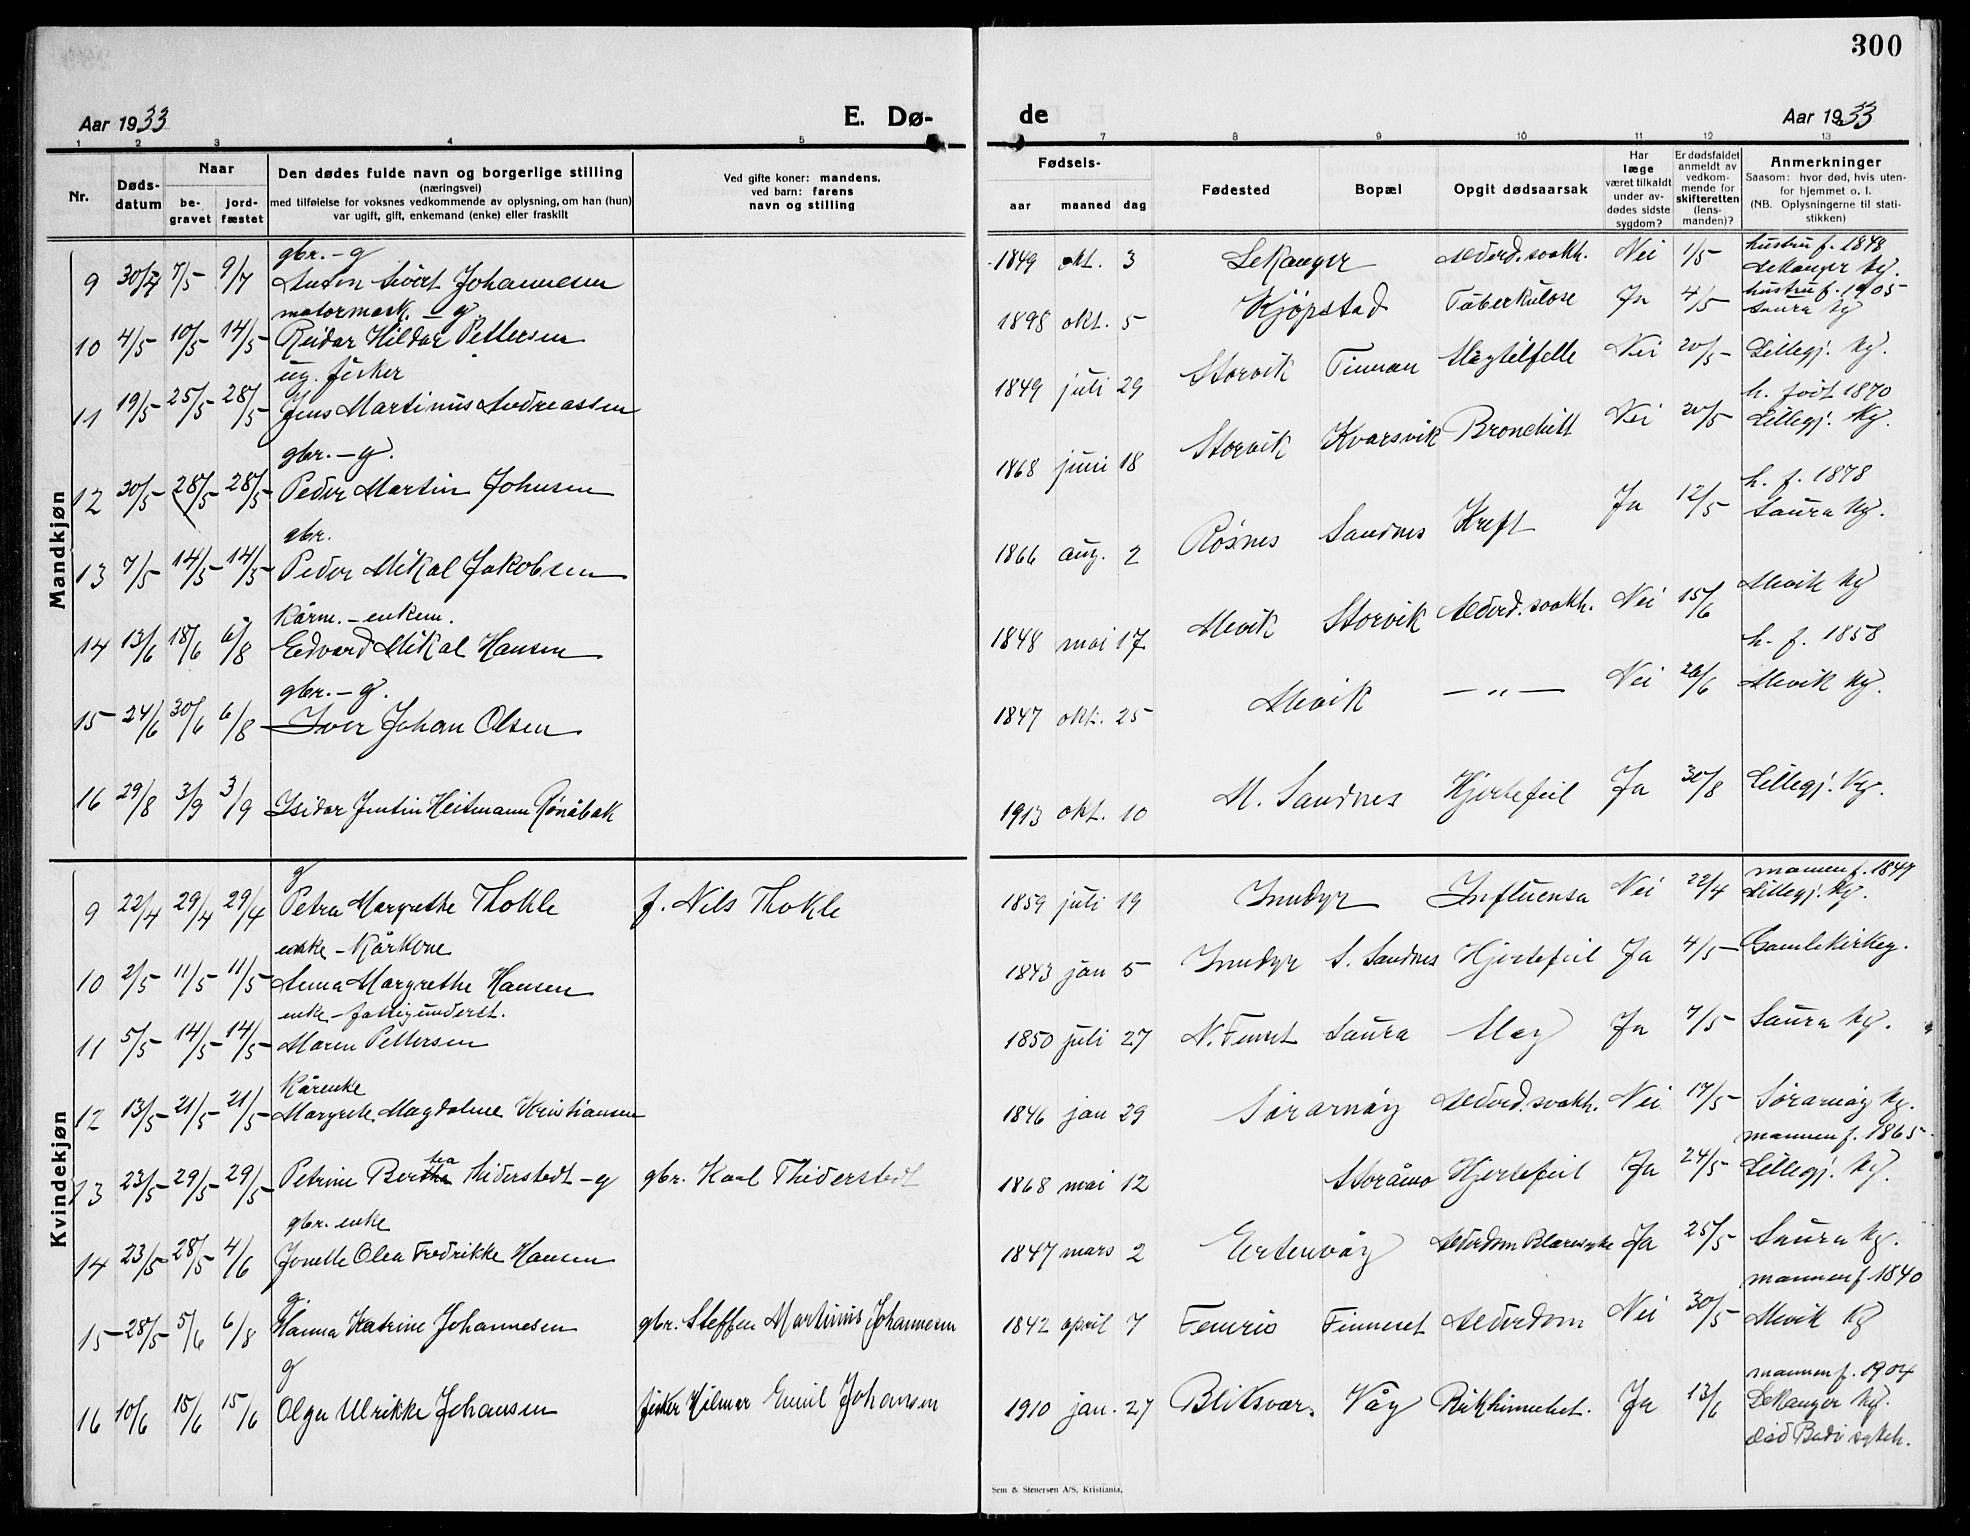 300
Aar 1933 E. Dø- de Aar 1933
1 2 3 4 5 7 8 9 10 11 12 13
Nr. Døds-datum Naar be-gravet jord-fæstet Den dødes fulde navn og borgerlige stilling (næringsvei) med tilføielse for voksnes vedkommende av oplysning, om han (hun) var ugift, gift, enkemand (enke) eller fraskilt Ved gifte koner: mandens, ved barn: farens navn og stilling Fødsels- aar maaned dag Fødested Bopæl Opgit dødsaarsak Har læge været tilkaldt under av-dødes sidste sygdom? Er dødsfaldet anmeldt av vedkom-mende for skifteretten (lens-manden)? Anmerkninger Saasom: hvor død, hvis uten-for hjemmet o. l. (NB. Oplysningerne til stati-stikken)
Mandkjøn
gbr. - g hustru f. 1848
9 30/4 7/5 9/7 Anton Sivert Johannesen 1849 okt. 3 Sekanger Alderd. svakh. Nei 1/5 Sekanger kg.
motormask. - g. hustru f. 1905
10 4/5 10/5 14/5 Reidar Hildar Pettersen 1898 okt. 5 Kjøpstad Tuberkulose Ja 4/5 Saura kg
ug. fisker
11 19/5 25/5 28/5 Jens Martinus Andreassen 1849 juli 29 Storvik Finnan Slagtilfelle Nei 20/5 Lillegj. kg.
gbr. - g. h. født 1870
12 30/5 28/5 28/5 Peder Martin Johnsen 1868 juni 18 Storvik Kvarsvik Bronchitt Nei 20/5 Lillegj. kg.
gbr. h. f. 1878
13 7/5 14/5 14/5 Peder Mikal Jakobsen 1866 aug. 2 Røsnes Sandnes Kreft Ja 12/5 Saura kg.
Kårm. - enkem.
14 13/6 18/6 6/8 Edvard Mikal Hansen 1848 mai 17 Mevik Storvik Alderd. svakh. Nei 15/6 Mevik kg
gbr. - g. h. f. 1858
15 24/6 30/6 6/8 Iver Johan Olsen 1847 okt. 25 Mevik — „ — Nei 26/6 Mevik kg.
16 29/8 3/9 3/9 Isidor Jentin Heitmann Rønåbak 1913 okt. 10 M. Sandnes Hjertefeil Ja 30/8 Lillegj. kg.
Kvindekjøn
g mannen f. 1847
9 22/4 29/4 29/4 Petra Margrethe Thokle f. Nils Thokle 1859 juli 19 Inndyr Influensa Nei 22/4 Lillegj. kg.
enke - Kårkone
10 2/5 11/5 11/5 Anna Margrethe Hansen 1843 jan 5 Inndyr S. Sandnes Hjertefeil Ja 4/5 Gamlekirkeg.
enke - fattigunderst.
11 5/5 14/5 14/5 Maren Pettersen 1850 juli 27 N. Finnset Saura Slag Ja 7/5 Saura kg.
Kårenke
12 13/5 21/5 21/5 Margrete Magdalene Kristiansen 1846 jan 29 Sørarnøy Alderd. svakh. Nei 17/5 Sørarnøy kg.
mannen f. 1865
13 23/5 29/5 29/5 Petrine Berthea Thiderstedt - g gbr. Karl Thiderstedt 1868 mai 12 Storåmo Hjertefeil Ja 24/5 Lillegj. kg.
gbr. enke
14 23/5 28/5 4/6 Jonette Olea Fredrikke Hansen 1847 mars 2 Ertenvåg Alderdom Blæresyke Ja 25/5 Saura kg.
g. mannen f 1840
15 28/5 5/6 6/8 Hanna Katrine Johannesen gbr. Steffen Martinus Johannesen 1842 april 7 Finneset Alderdom Nei 30/5 Mevik kg
g mannen f. 1904
16 10/6 15/6 15/6 Olga Ulrikke Johansen fisker Hilmar Emil Johansen 1910 jan. 27 Bliksvær. Våg Bukhinnebet. Ja 13/6 Sekanger kg.
død Bodø sykeh.
Sem & Stenersen A/S, Kristiania.